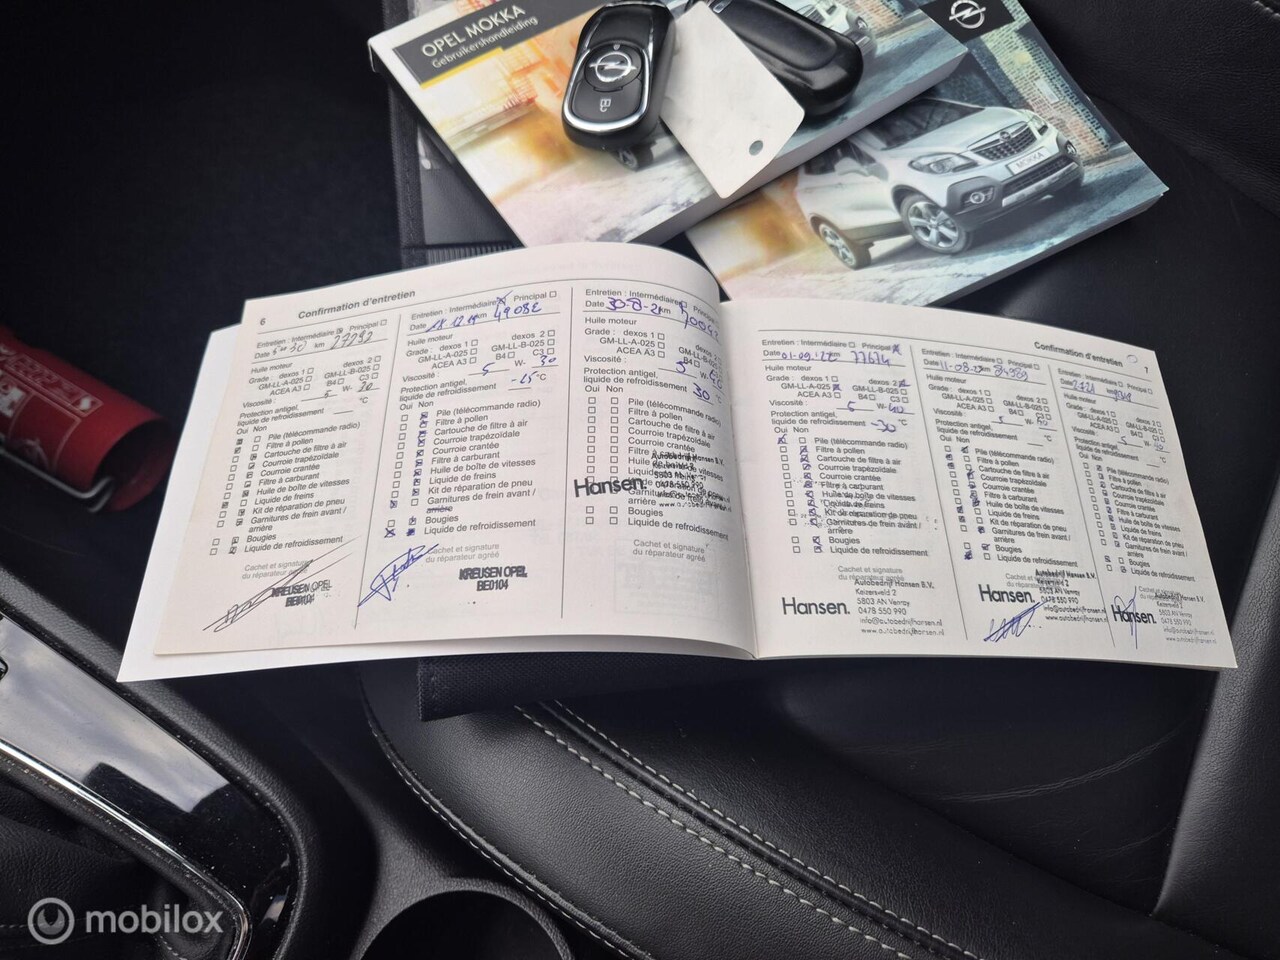 OPEL MOKKA
Gebruikershandleiding
MOKKA
6
Confirmation d'entretien
Entretien : Intermédiaire Principal
Date km 27292
Grade : dexos 1 dexos 2
GM-LL-A-025 GM-LL-B-025
ACEA A3 B4 C3
Viscosité : 5 W-
Protection antigel,
liquide de refroidissement °C
Oui Non
Pile (télécommande radio)
Filtre à pollen
Cartouche de filtre à air
Courroie trapézoïdale
Courroie crantée
Filtre à carburant
Huile de boîte de vitesses
Liquide de freins
Kit de réparation de pneu
Garnitures de frein avant /
arrière
Bougies
Liquide de refroidissement
Cachet et signature
du réparateur agréé
KREUSEN OPEL
BE0104
Entretien : Intermédiaire Principal
Date 18.12 km 49082
Huile moteur
Grade : dexos 1 dexos 2
GM-LL-A-025 GM-LL-B-025
ACEA A3 B4 C3
Viscosité : 5 W- 30
Protection antigel,
liquide de refroidissement -25 °C
Oui Non
Pile (télécommande radio)
Filtre à pollen
Cartouche de filtre à air
Courroie trapézoïdale
Courroie crantée
Filtre à carburant
Huile de boîte de vitesses
Liquide de freins
Kit de réparation de pneu
Garnitures de frein avant /
arrière
Bougies
Liquide de refroidissement
Cachet et signature
du réparateur agréé
KREUSEN OPEL
BE0104
Entretien : Intermédiaire
Date 30-8-21 km
Huile moteur
Grade : dexos 1 dexos 2
GM-LL-A-025 GM-LL-B-025
ACEA A3 B4 C3
Viscosité : 5 W-
Protection antigel,
liquide de refroidissement 30 °C
Oui Non
Pile (télécommande radio)
Filtre à pollen
Cartouche de filtre à air
Courroie trapézoïdale
Courroie crantée
arrière
Bougies
Liquide de refroidissement
Hansen.
0478 550 990
Cachet et signature
du réparateur agréé
Confirmation d'entretien
7
Entretien : Intermédiaire Principal
Date 01-09-22 km 77674
Huile moteur
Grade : dexos 1 dexos 2
GM-LL-A-025 GM-LL-B-025
ACEA A3 B4 C3
Viscosité : 5 W- 40
Protection antigel,
liquide de refroidissement -30 °C
Oui Non
Pile (télécommande radio)
Filtre à pollen
Cartouche de filtre à air
Courroie trapézoïdale
Courroie crantée
Filtre à carburant
Huile de boîte de vitesses
Liquide de freins
Kit de réparation de pneu
Garnitures de frein avant /
arrière
Bougies
Liquide de refroidissement
Cachet et signature
du réparateur agréé
Hansen.
Autobedrijf Hansen B.V.
Keizersveld 2
5803 AN Venray
0478 550 990
info@autobedrijfhansen.nl
www.autobedrijfhansen.nl
Entretien : Intermédiaire Principal
Date 11-08- km 84989
Huile moteur
Grade : dexos 1 dexos 2
GM-LL-A-025 GM-LL-B-025
ACEA A3 B4 C3
Viscosité : 5 W- 40
Protection antigel,
liquide de refroidissement °C
Oui Non
Pile (télécommande radio)
Filtre à pollen
Cartouche de filtre à air
Courroie trapézoïdale
Courroie crantée
Filtre à carburant
Huile de boîte de vitesses
Liquide de freins
Kit de réparation de pneu
Garnitures de frein avant /
arrière
Bougies
Liquide de refroidissement
Cachet et signature
du réparateur agréé
Hansen.
Autobedrijf Hansen B.V.
Keizersveld 2
5803 AN Venray
0478 550 990
info@autobedrijfhansen.nl
www.autobedrijfhansen.nl
Entretien : Intermédiaire Principal
Date km
Huile moteur
Grade : dexos 1 dexos 2
GM-LL-A-025 GM-LL-B-025
ACEA A3 B4 C3
Viscosité : 5 W-
Protection antigel,
liquide de refroidissement °C
Oui Non
Pile (télécommande radio)
Filtre à pollen
Cartouche de filtre à air
Courroie trapézoïdale
Courroie crantée
Filtre à carburant
Huile de boîte de vitesses
Liquide de freins
Kit de réparation de pneu
Garnitures de frein avant /
arrière
Bougies
Liquide de refroidissement
Cachet et signature
du réparateur agréé
Hansen.
Autobedrijf Hansen B.V.
Keizersveld 2
5803 AN Venray
0478 550 990
info@autobedrijfhansen.nl
www.autobedrijfhansen.nl
mobilox